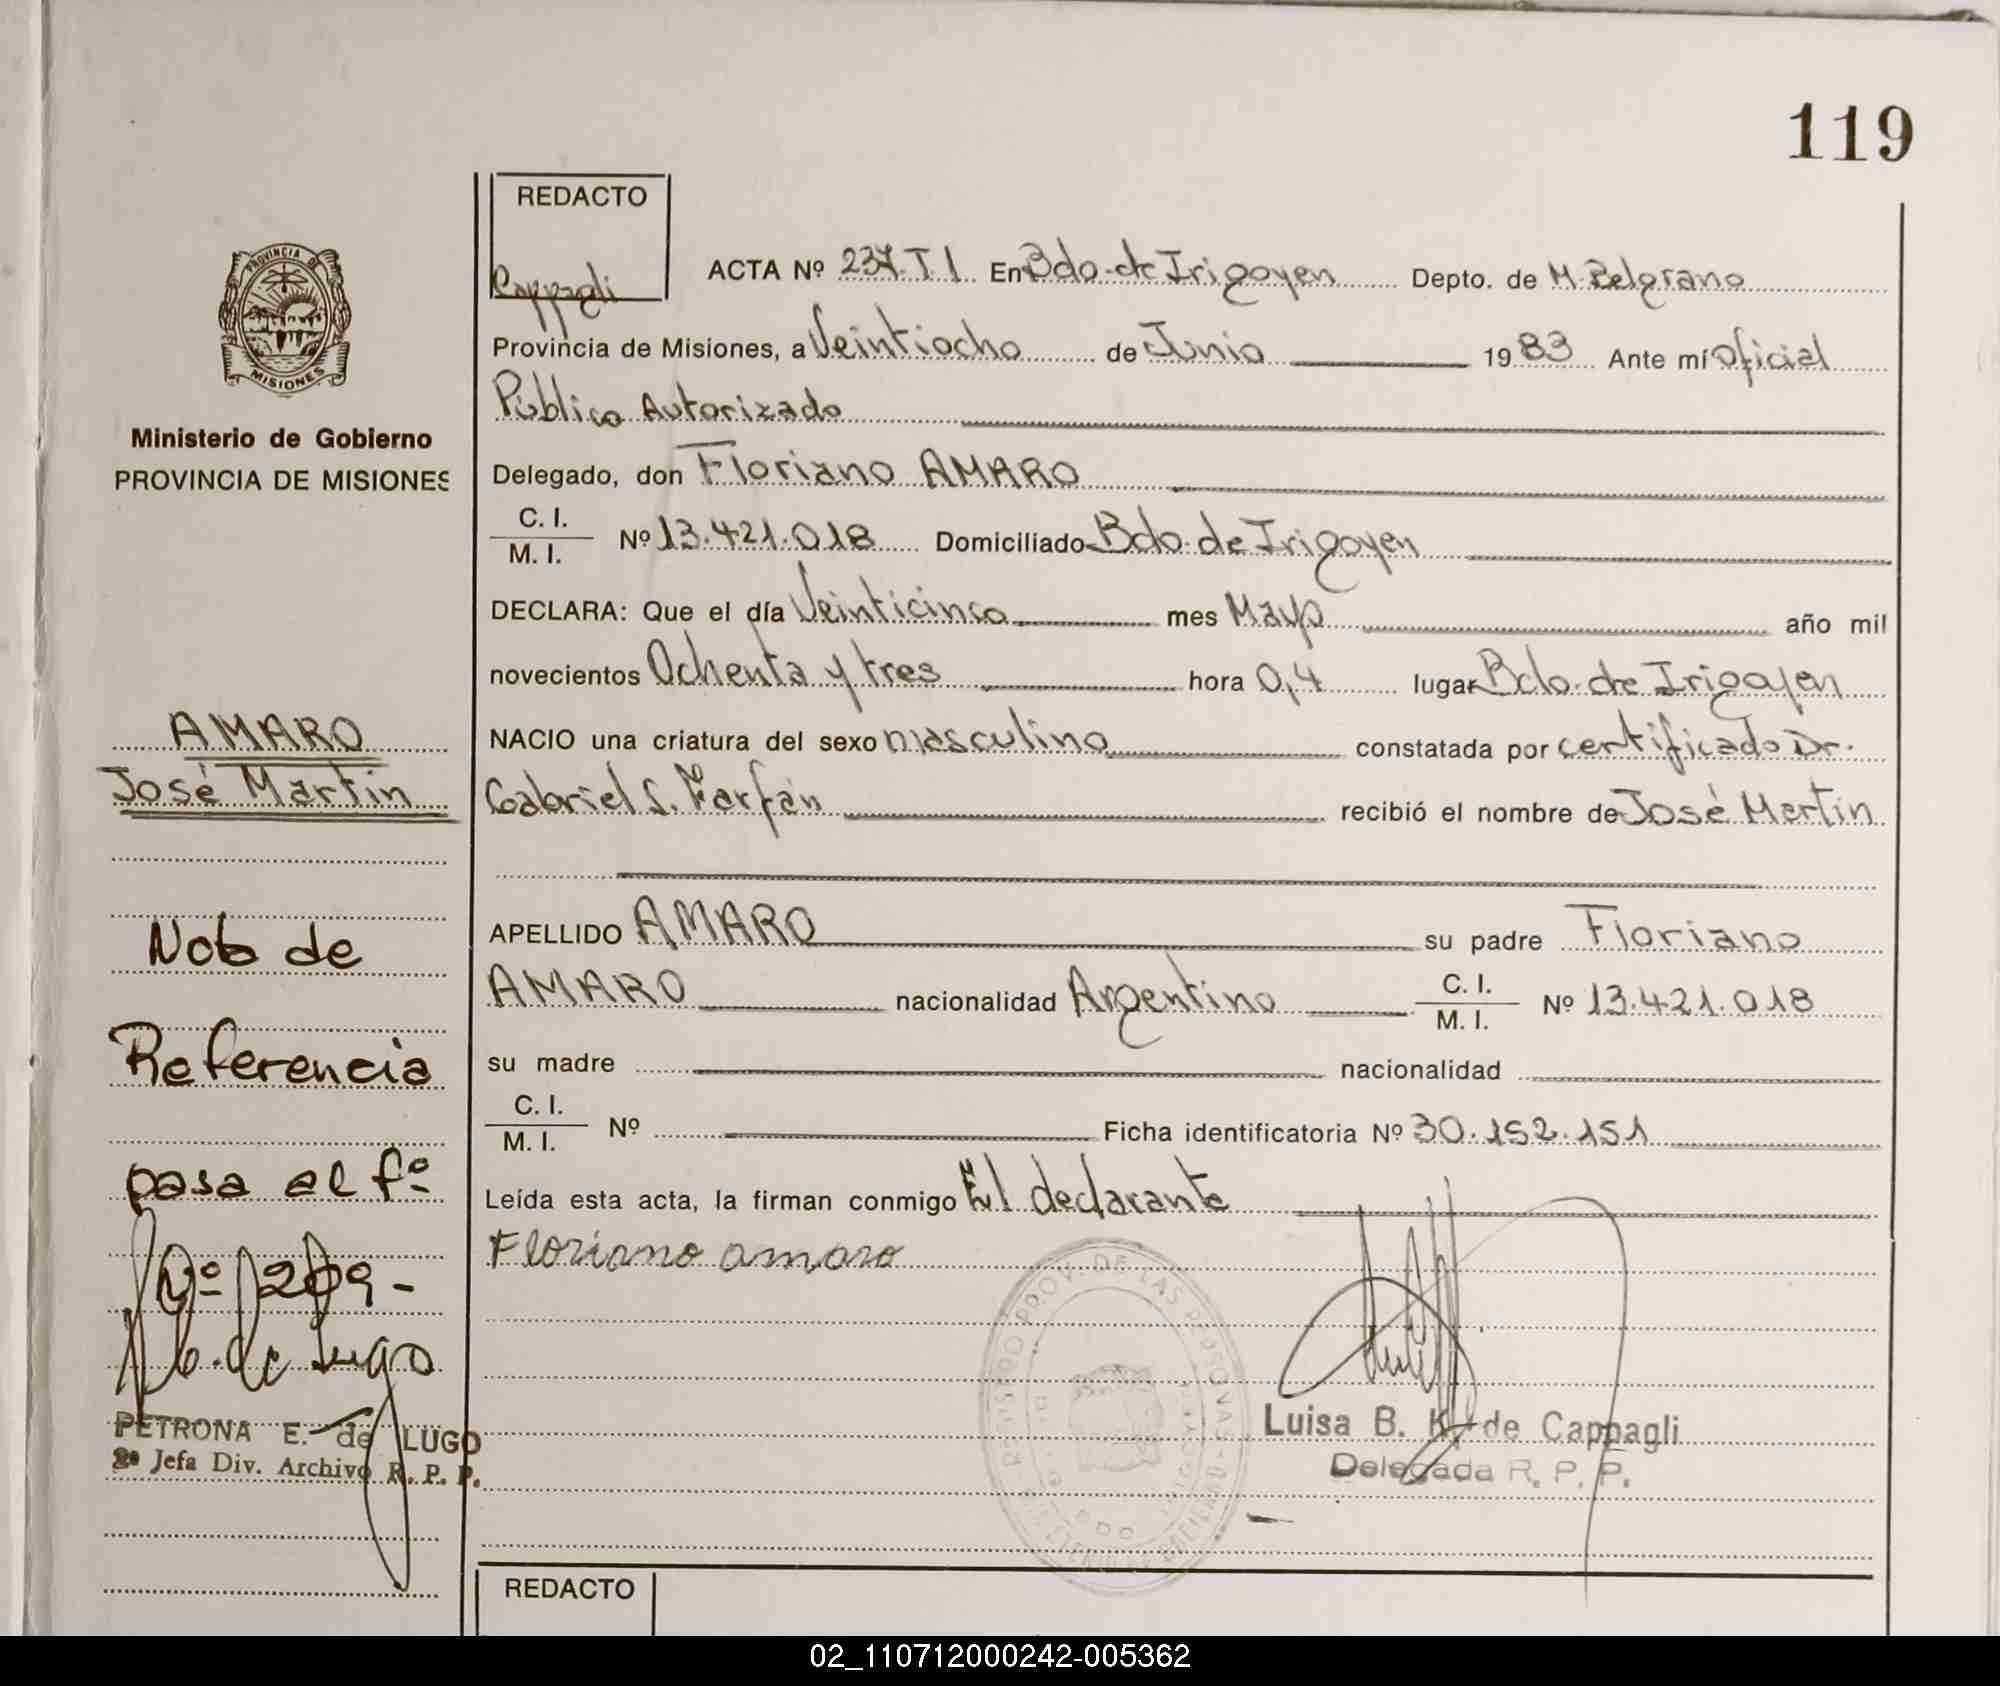 119
REDACTO
Cappagli
ACTA Nº 237.T I. En Bdo. de Irigoyen Depto. de M. Belgrano
Provincia de Misiones, a Veintiocho de Junio 1983 Ante mí Oficial
Público Autorizado
Delegado, don Floriano AMARO
C. I.
M. I. Nº 13.421.018 Domiciliado Bdo. de Irigoyen
DECLARA: Que el día Veinticinco mes Mayo año mil
novecientos Ochenta y tres hora 0,4 lugar Bdo. de Irigoyen
NACIO una criatura del sexo masculino constatada por certificado Dr.
Gabriel S. Farfán recibió el nombre de José Martín
APELLIDO AMARO su padre Floriano
AMARO nacionalidad Argentino C. I.
M. I. Nº 13.421.018
su madre nacionalidad
C. I.
M. I. Nº Ficha identificatoria Nº 30.152.151
Leída esta acta, la firman conmigo El declarante
Floriano amaro
Luisa B. K. de Cappagli
Delegada R. P. P.
REDACTO
PROVINCIA DE
MISIONES
Ministerio de Gobierno
PROVINCIA DE MISIONES
AMARO
José Martín
Nota de
Referencia
pasa al fº
Nº 209-
de Lugo
PETRONA E. de LUGO
2º Jefa Div. Archivo R. P. P.
02_110712000242-005362